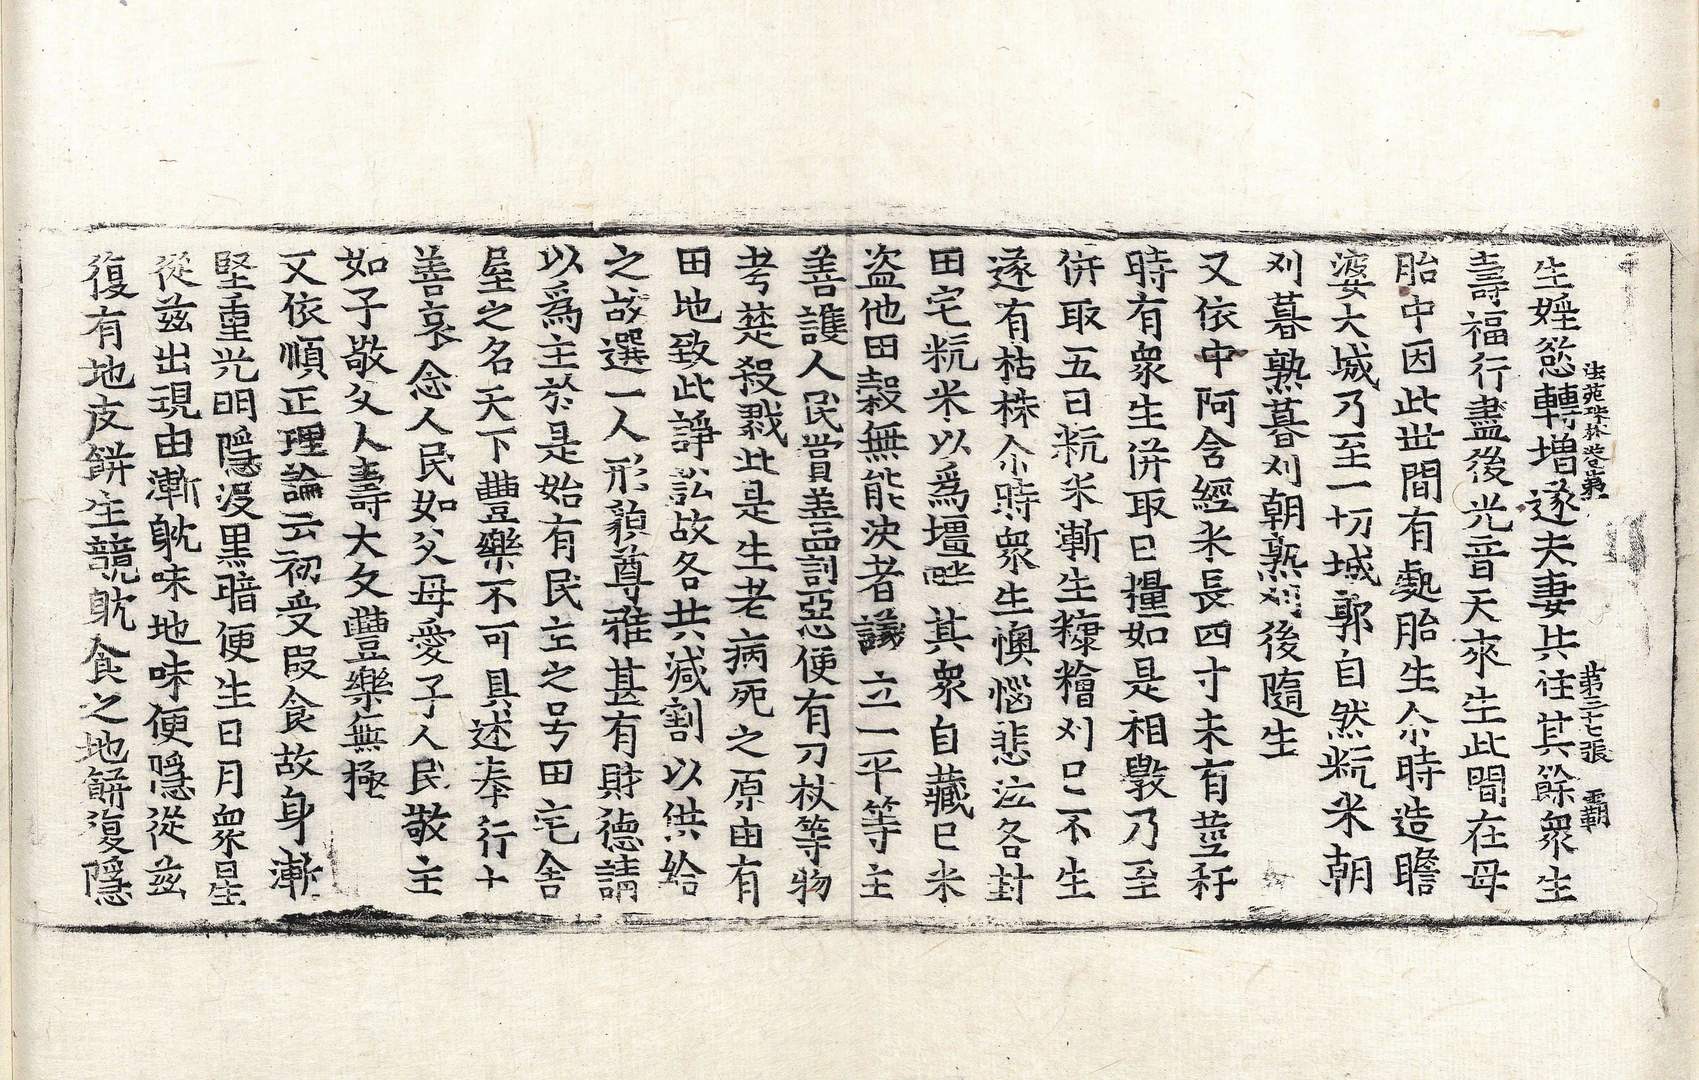 法苑珠林卷第一 第三十七張 覇
生婬慾轉增遂夫妻共住其餘衆生
壽福行盡後光音天來生此間在母
胎中因此世間有處胎生尒時造瞻
婆大城乃至一切城郭自然粇米朝
刈暮熟暮刈朝熟刈後隨生
又依中阿含經米長四寸未有莖秆
時有衆生併取日糧如是相斆乃至
併取五日粇米漸生糠糩刈已不生
遂有枯株尒時衆生懊惱悲泣各封
田宅粇米以爲壃畔其衆自藏已米
盗他田穀無能決者議立一平等主
善護人民賞善罰惡便有刀杖等物
考楚殺戮此是生老病死之原由有
田地致此諍訟故各共減割以供給
之故選一人形貌尊雅甚有財德請
以爲主於是始有民主之号田宅舍
屋之名天下豐樂不可具述奉行十
善哀念人民如父母愛子人民敬主
如子敬父人壽大久豐樂無極
又依順正理論云初受段食故身漸
堅重光明隱没黒暗便生日月衆星
從兹出現由漸躭味地味便隱從兹
復有地皮餅生競躭食之地餅復隱